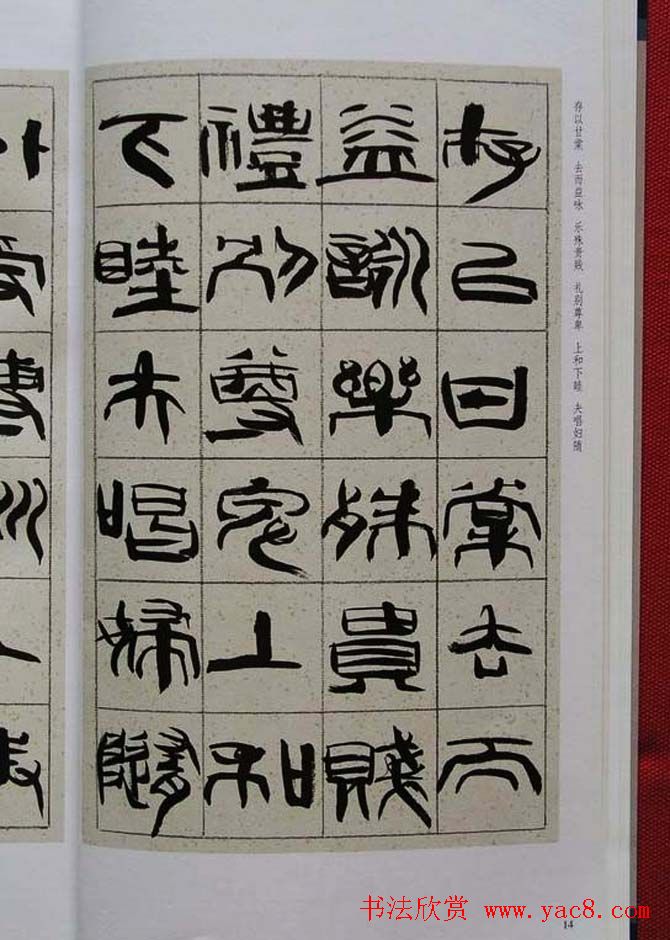 存以甘棠 去而益咏 乐殊贵贱 礼别尊卑 上和下睦 夫唱妇随
存以甘棠去而
益詠樂殊貴賤
禮別尊卑上和
下睦夫唱婦隨
14
书法欣赏 www.yac8.com